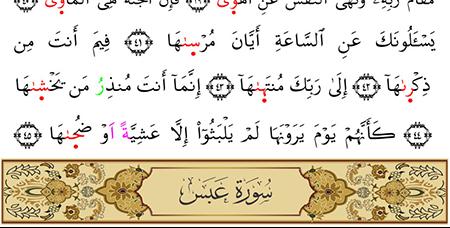 مَقَامَ رَبِّهِۦ وَنَهَى ٱلنَّفْسَ عَنِ ٱلْهَوَىٰ ٤٠ فَإِنَّ ٱلْجَنَّةَ هِىَ ٱلْمَأْوَىٰ ٤١
يَسْـَٔلُونَكَ عَنِ ٱلسَّاعَةِ أَيَّانَ مُرْسَىٰهَا ٤١ فِيمَ أَنتَ مِن
ذِكْرَىٰهَآ ٤٢ إِلَىٰ رَبِّكَ مُنتَهَىٰهَآ ٤٣ إِنَّمَآ أَنتَ مُنذِرُ مَن يَخْشَىٰهَا
٤٤ كَأَنَّهُمْ يَوْمَ يَرَوْنَهَا لَمْ يَلْبَثُوٓا۟ إِلَّا عَشِيَّةً أَوْ ضُحَىٰهَا ٤٥
سُورَةُ عَبَسَ